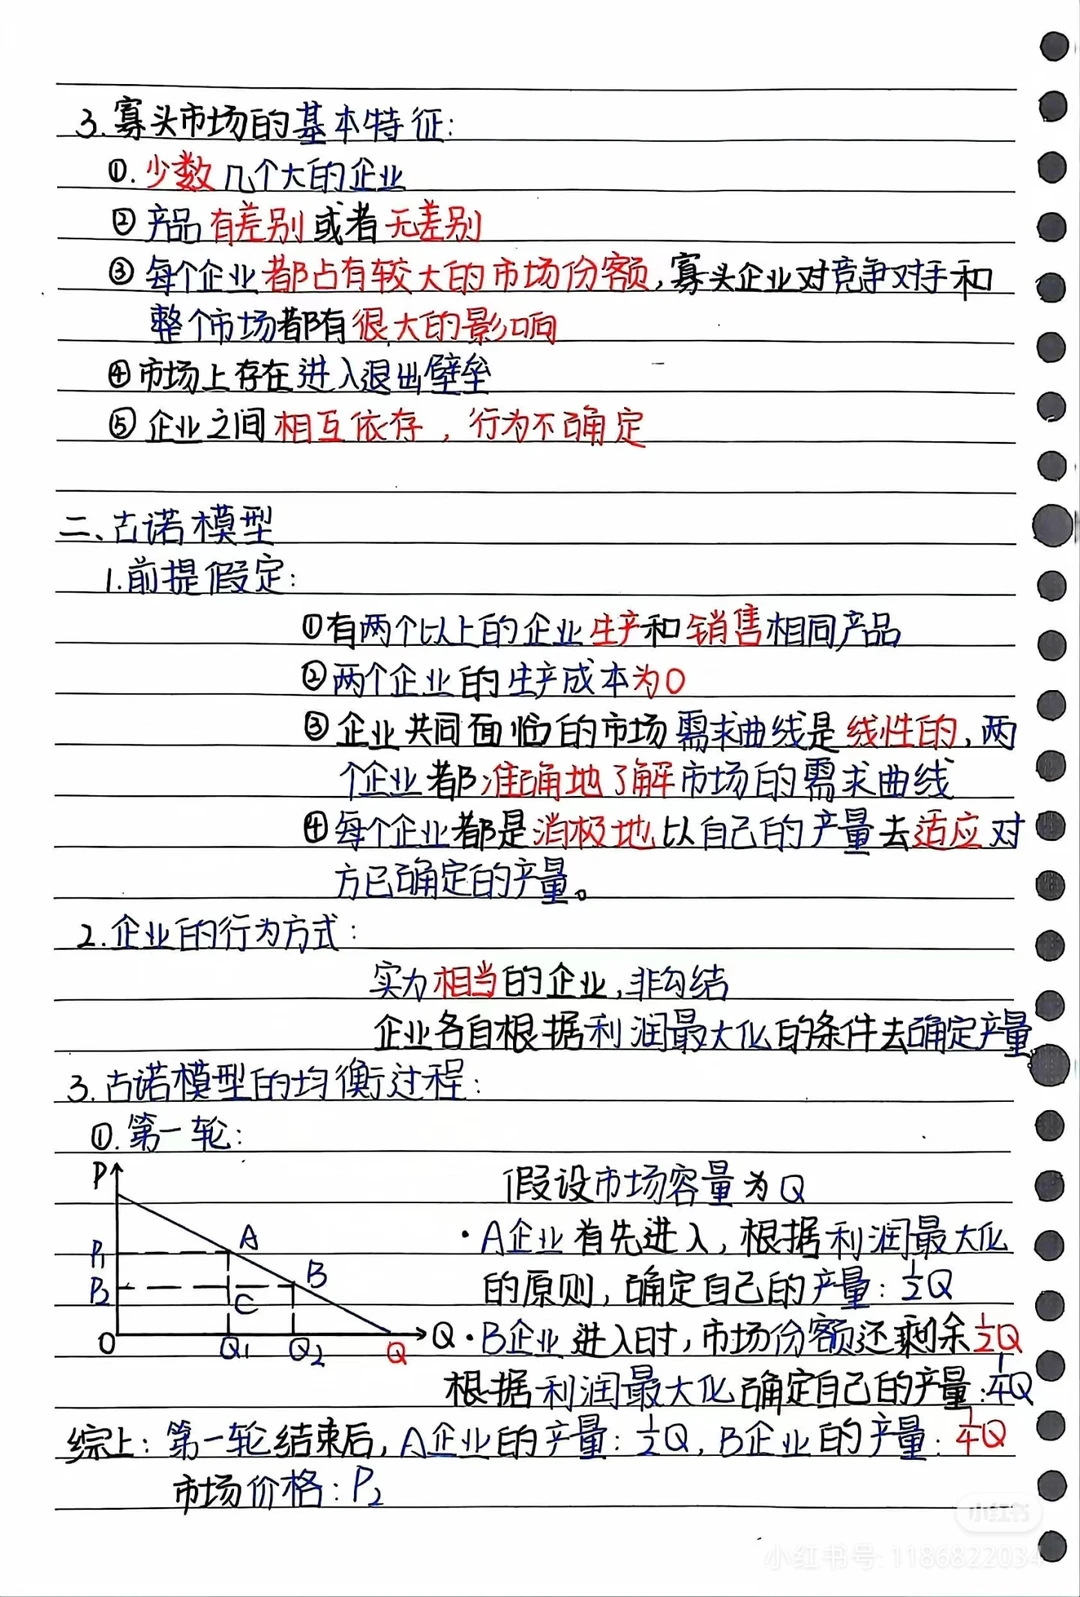 3.寡头市场的基本特征:
①.少数几个大的企业
②产品有差别或者无差别
③每个企业都占有较大的市场份额,寡头企业对竞争对手和
整个市场都有很大的影响
④市场上存在进入退出壁垒
⑤企业之间相互依存,行为不确定
二、古诺模型
1.前提假定:
①有两个以上的企业生产和销售相同产品
②两个企业的生产成本为0
③企业共同面临的市场需求曲线是线性的,两
个企业都准确地了解市场的需求曲线
④每个企业都是消极地以自己的产量去适应对
方已确定的产量。
2.企业的行为方式:
实力相当的企业,非勾结
企业各自根据利润最大化的条件去确定产量
3.古诺模型的均衡过程:
①.第一轮:
P
P₁
P₂
O
A
B
C
Q₁
Q₂
Q
Q
假设市场容量为Q
·A企业首先进入,根据利润最大化
的原则,确定自己的产量:½Q
·B企业进入时,市场份额还剩余½Q
根据利润最大化确定自己的产量:¼Q
综上:第一轮结束后,A企业的产量:½Q,B企业的产量:¼Q
市场价格:P₂
小红书
小红书号:1186822034